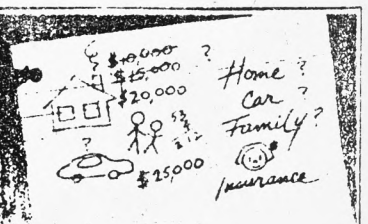 $10,000
$15,000
$20,000
?
?
$25,000
Home ?
Car ?
Family?
$
Insurance